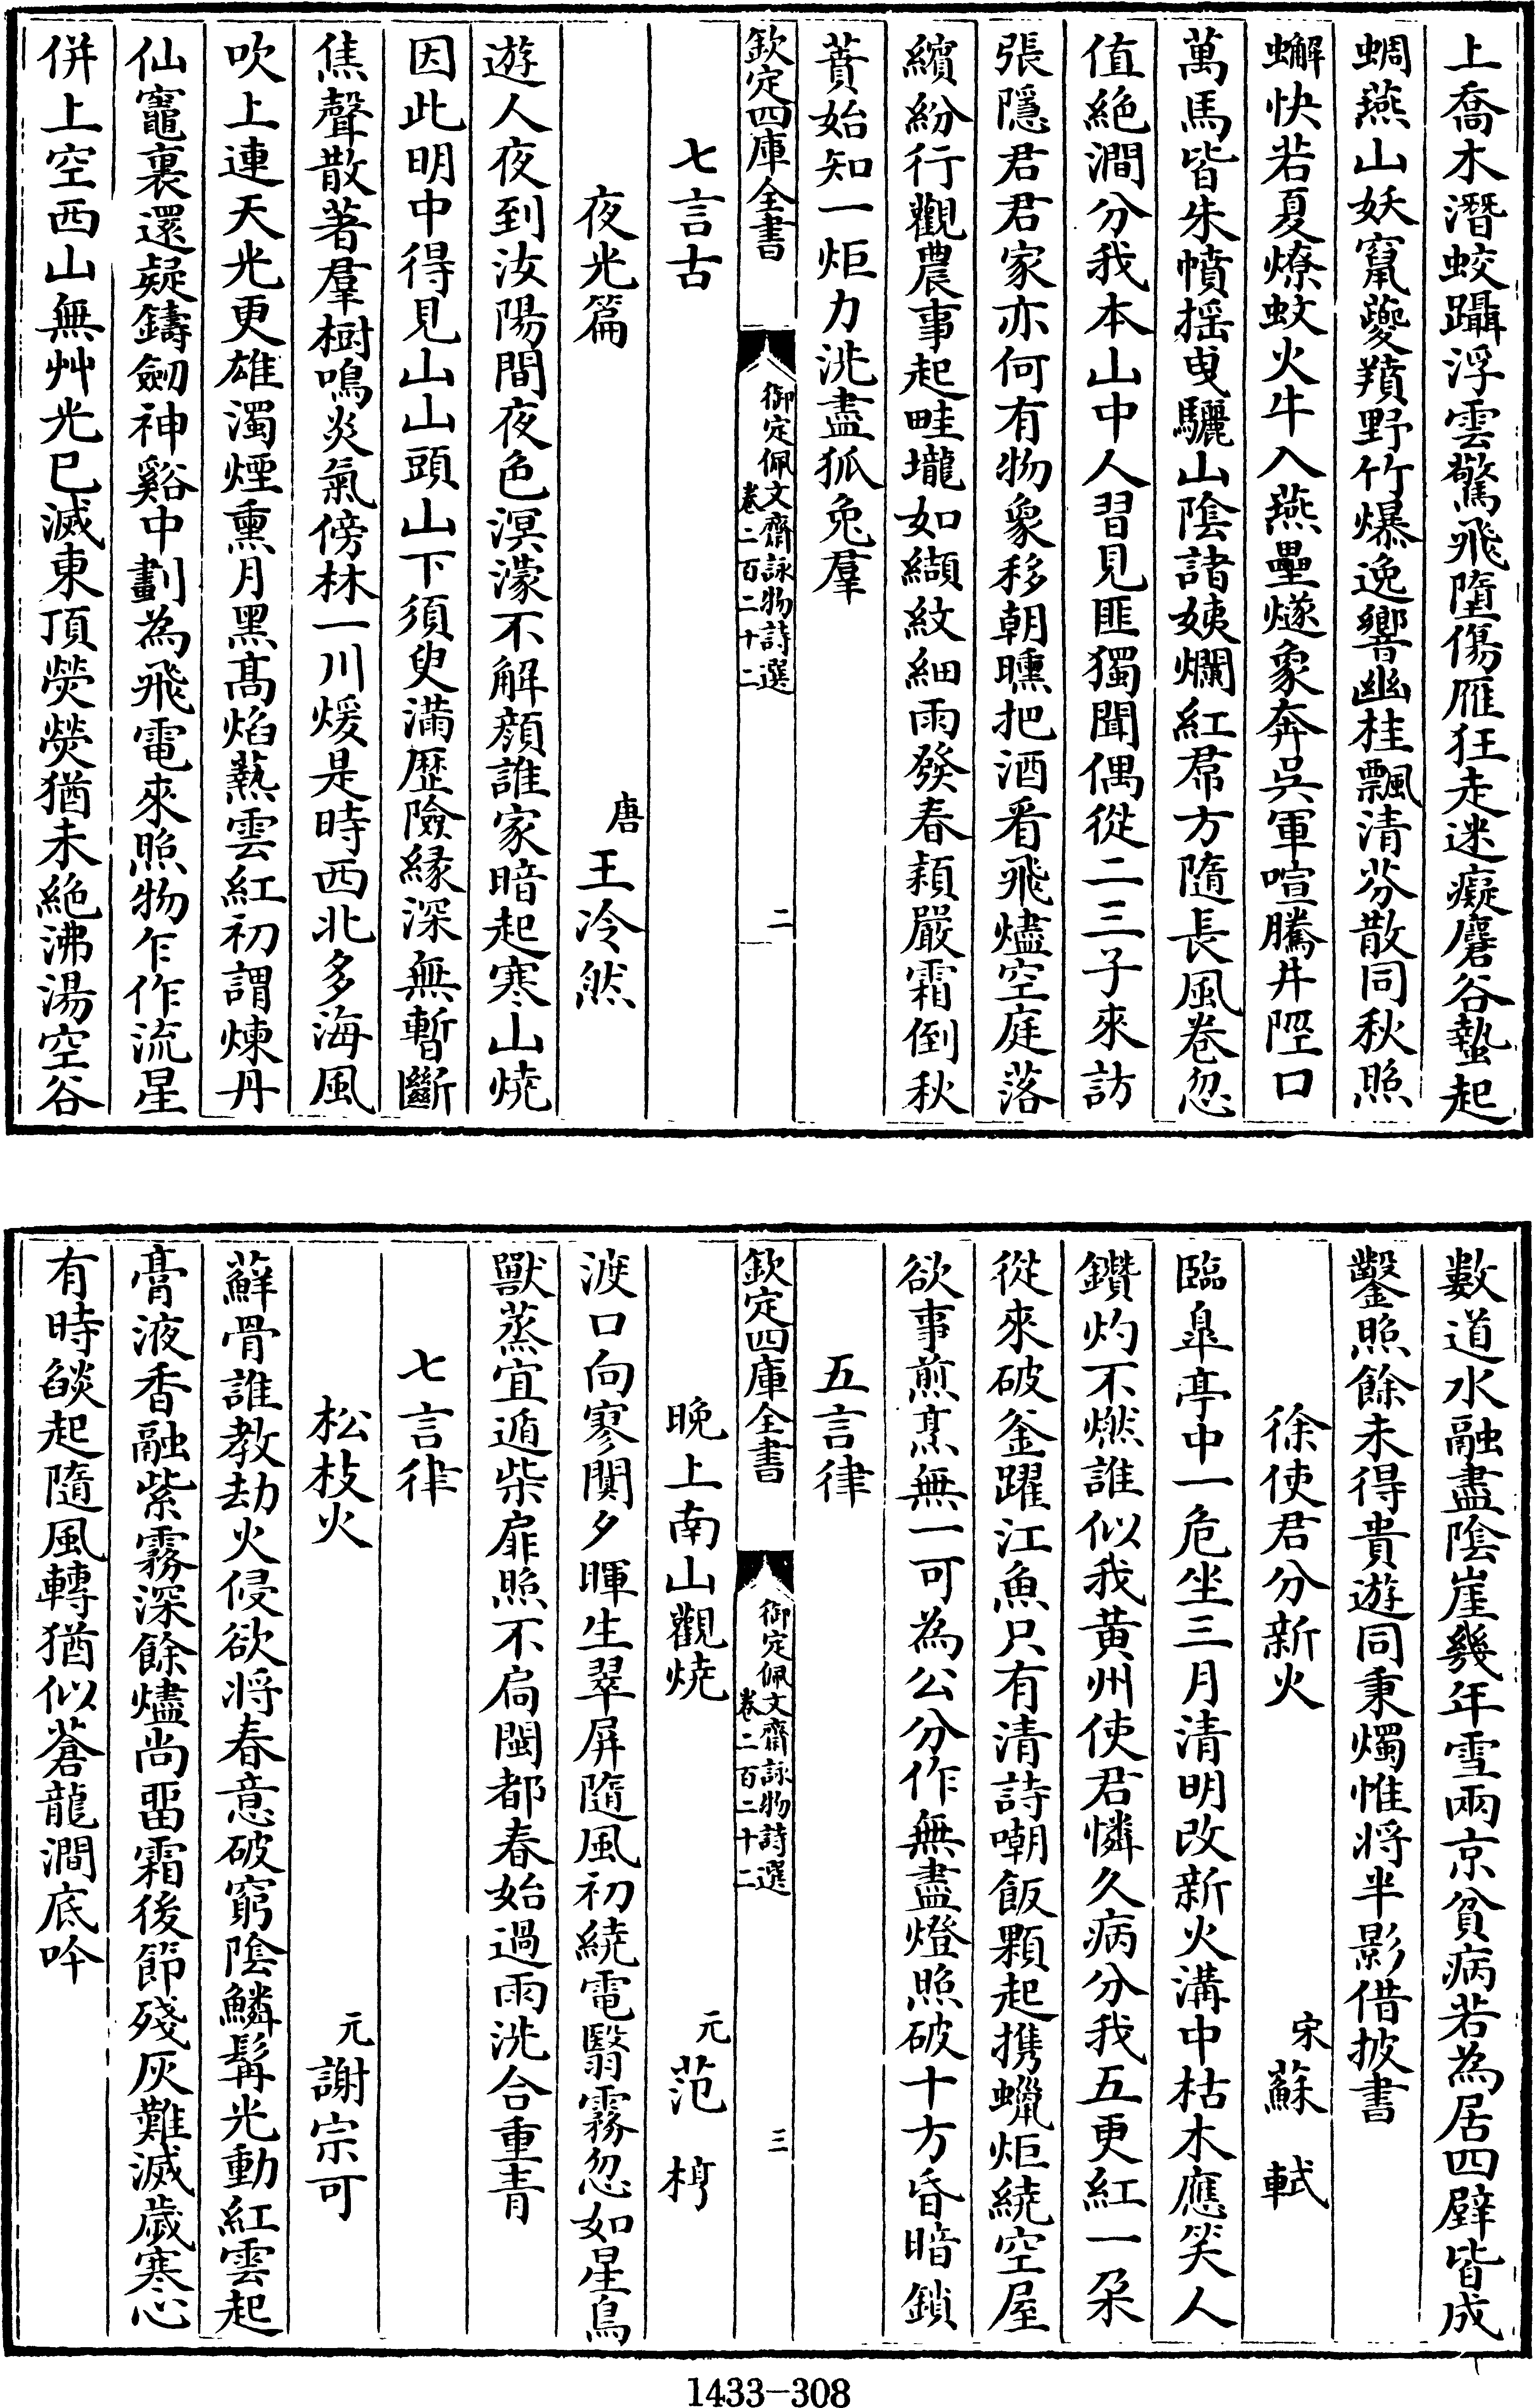 上喬木潛蛟躡浮雲驚飛墮傷雁狂走迷癡麏谷蟄起
蜩燕山妖竄夔羵野竹爆逸響幽桂飄清芬散同秋照
蠏快若夏燎蚊火牛入燕壘燧象奔吳軍喧騰井陘口
萬馬皆朱幩搖曳驪山陰諸姨爛紅帬方隨長風卷忽
值絕澗分我本山中人習見匪獨聞偶從二三子來訪
張隱君君家亦何有物象移朝曛把酒看飛燼空庭落
繽紛行觀農事起畦壠如纈紋細雨發春穎嚴霜倒秋
蕡始知一炬力洗盡狐兔羣
欽定四庫全書
御定佩文齋詠物詩選
卷二百二十二
二
七言古
夜光篇
唐 王泠然
遊人夜到汝陽間夜色溟濛不解顔誰家暗起寒山燒
因此明中得見山山頭山下須臾滿歷險緣深無暫斷
焦聲散著羣樹鳴炎氣傍林一川煖是時西北多海風
吹上連天光更雄濁煙熏月黑高焰爇雲紅初謂煉丹
仙竈裏還疑鑄劒神谿中劃為飛電來照物乍作流星
併上空西山無艸光已滅東頂熒熒猶未絕沸湯空谷
數道水融盡陰崖幾年雪兩京貧病若為居四壁皆成
鑿照餘未得貴遊同秉燭惟將半影借披書
徐使君分新火
宋 蘇 軾
臨臯亭中一危坐三月清明改新火溝中枯木應笑人
鑽灼不燃誰似我黄州使君憐久病分我五更紅一朶
從來破釜躍江魚只有清詩嘲飯顆起攜蠟炬繞空屋
欲事煎烹無一可為公分作無盡燈照破十方昏暗鎖
五言律
欽定四庫全書
御定佩文齋詠物詩選
卷二百二十二
三
晚上南山觀燒
元 范 梈
渡口向寥闃夕暉生翠屏隨風初繞電翳霧忽如星鳥
獸蒸宜遁柴扉照不扃閩都春始過雨洗合重青
七言律
松枝火
元 謝宗可
蘚骨誰教劫火侵欲將春意破窮陰鱗髯光動紅雲起
膏液香融紫霧深餘燼尚畱霜後節殘灰難滅歲寒心
有時燄起隨風轉猶似蒼龍澗底吟
1433-308